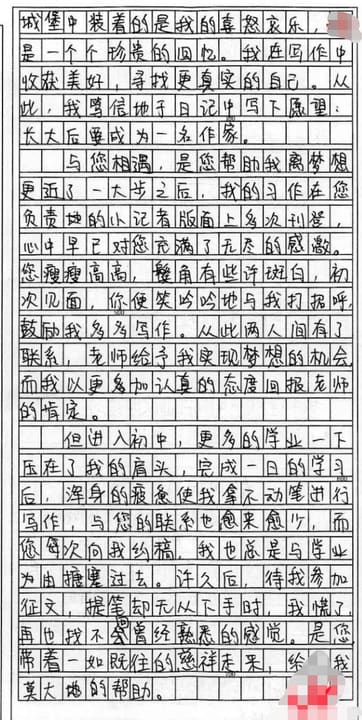 城堡中装着的是我的喜怒哀乐，
是一个个珍贵的回忆。我在写作中
收获美好，寻找更真实的自己。从
此，我笃信地于日记中写下愿望：
长大后要成为一名作家。
与您相遇，是您帮助我离梦想
更近了一大步之后，我的习作在您
负责地的小记者版面上多次刊登，
心中早已对您充满了无尽的感激。
您瘦瘦高高，鬓角有些许斑白，初
次见面，你便笑吟吟地与我打招呼，
鼓励我多多写作。从此两人间有了
联系，老师给予我实现梦想的机会，
而我以更多加认真的态度回报老师
的肯定。
但进入初中，更多的学业一下
压在了我的肩头，完成一日的学习
后，浑身的疲惫使我拿不动笔进行
写作，与您的联系也愈来愈少，而
您每次向我约稿，我也总是与学业
为由搪塞过去。许久后，待我参加
征文，提笔却无从下手时，我慌了，
再也找不回曾经熟悉的感觉。是您，
带着一如既往的慈祥走来，给我
莫大地的帮助。